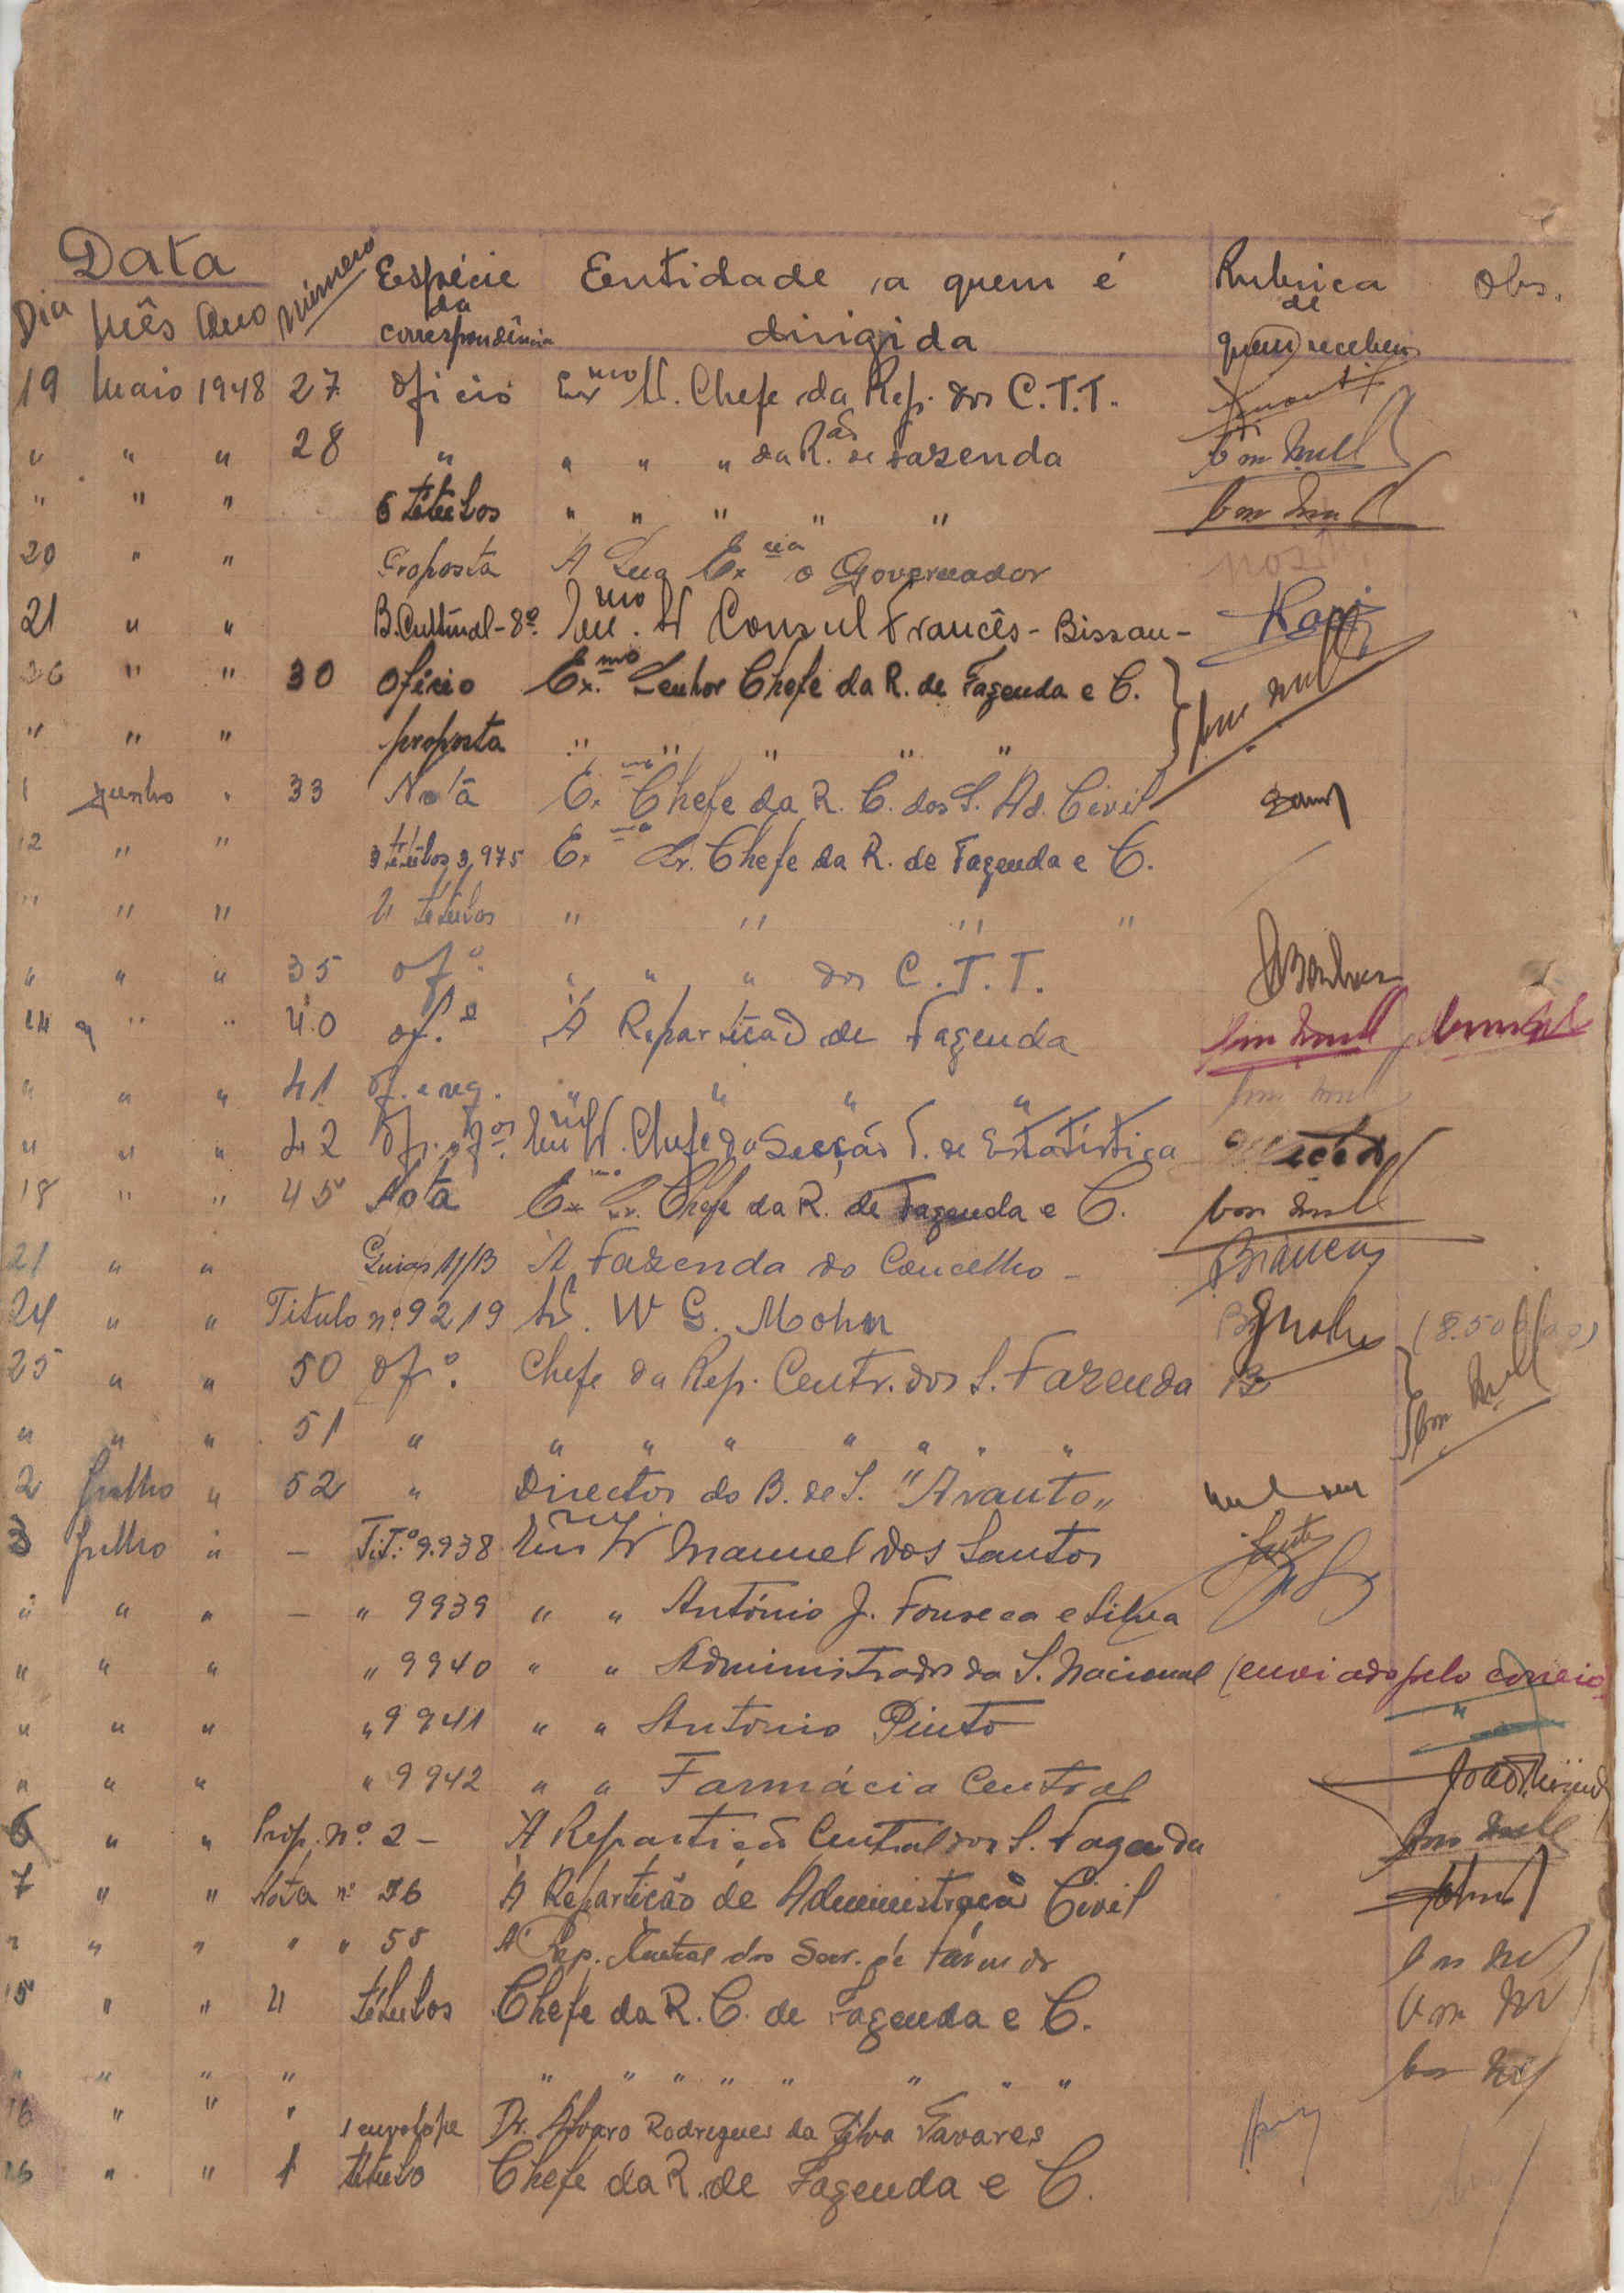 Data
Dia Mês Ano Número Espécie da correspondência Entidade a quem é dirigida Rubrica de quem recebeu Obs.
19 Maio 1948 27 Ofício Exmo Sr. Chefe da Rep. dos C.T.T.
" " " 28 " " " " da R. de Fazenda
" " " 6 títulos " " " " "
20 " " Proposta A Sua Excia o Governador
21 " " B. Cultural - 8º. Exmo Sr Consul Francês - Bissau -
26 " " 30 Ofício Exmo. Senhor Chefe da R. de Fazenda e C.
" " " proposta " " " " "
1 Junho " 33 Nota Exmo Chefe da R. C. dos S. Ad. Civil
12 " " 3 títulos 3,975 Exmo Sr. Chefe da R. de Fazenda e C.
" " " 4 títulos " " " "
" " " 35 ofº. " " " dos C.T.T.
14 " " 40 of.º À Repartição de Fazenda
" " " 41 Of. e reg. " " " "
" " " 42 Exmo Sr. Chefe da Secção T. de Estatística
18 " " 45 Nota Exmo Sr. Chefe da R. de Fazenda e C.
21 " " Guias M/B À Fazenda do Concelho -
24 " " Titulo nº 9219 Sr. W G. Mohn
25 " " 50 ofº. Chefe da Rep. Centr. dos S. Fazenda
" " " 51 " " " " " " " "
2 Julho " 52 " Director do B. de S. "Arauto"
3 Julho " - Tit.º 9.938 Exmo Sr Manuel dos Santos
" " " - " 9939 " " António J. Fonseca e Silva
" " " " 9940 " " Administrador da S. Nacional (enviado pelo correio)
" " " " 9941 " " António Pinto "
" " " " 9942 " " Farmácia Central
6 " " Prop. nº. 2 - À Repartição Central dos S. Fazenda
7 " " Nota nº 56 À Repartição de Administração Civil
" " " " " 55 À Rep. Central dos Ser. de
15 " " 4 títulos Chefe da R. C. de Fazenda e C.
" " " " " " " " " " " "
16 " " " 1 envelope Dr. Álvaro Rodrigues da Silva Tavares
16 " " 1 título Chefe da R. de Fazenda e C.